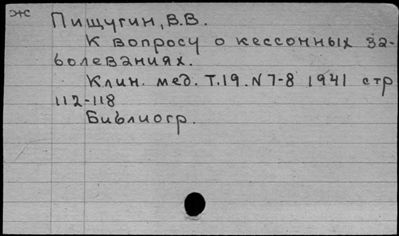 ж
Пищугин, В.В.
К вопросу о кессонных за-
болеваниях.
Клин. мед. Т.19. N 7-8 1941 стр
112-118
Библиогр.